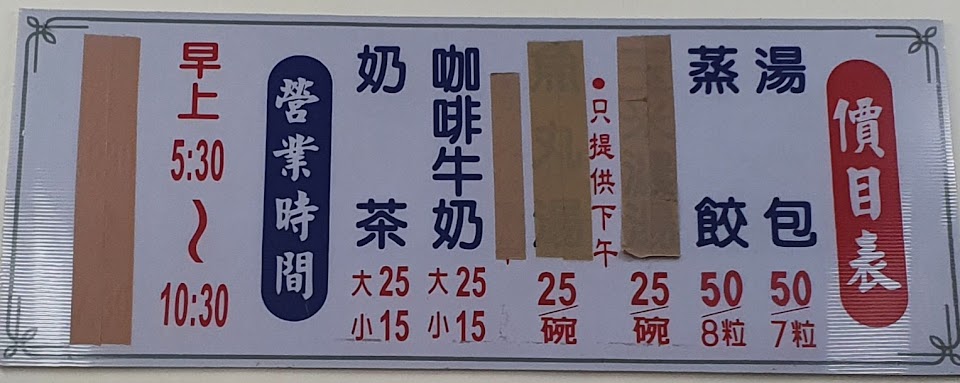 價目表
湯包
50/7粒
蒸餃
50/8粒
25/碗
●只提供下午
25/碗
咖啡牛奶
大25
小15
奶茶
大25
小15
營業時間
早上
5:30
~
10:30